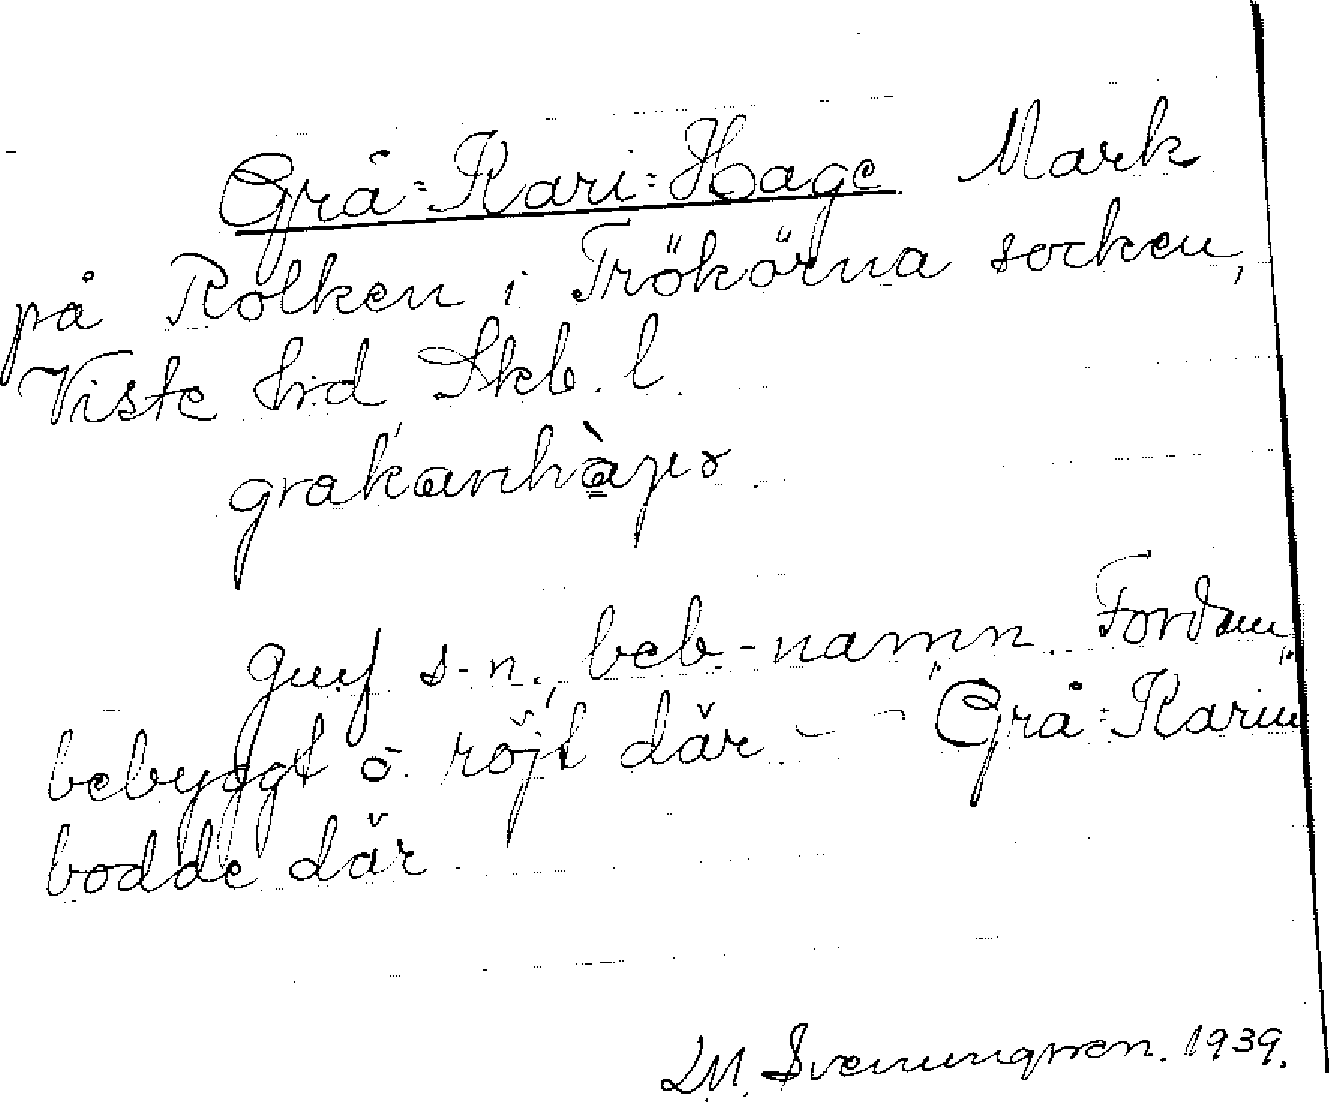 Grå-Kari-Hage Mark
på Rölken i Trökörna socken,
Viste hrd Skb. l.
s-n, beb-namn. Fordom
bebyggt o. röjt där — "Grå-Karin"
bodde där.
LM. Svenungsson. 1939.